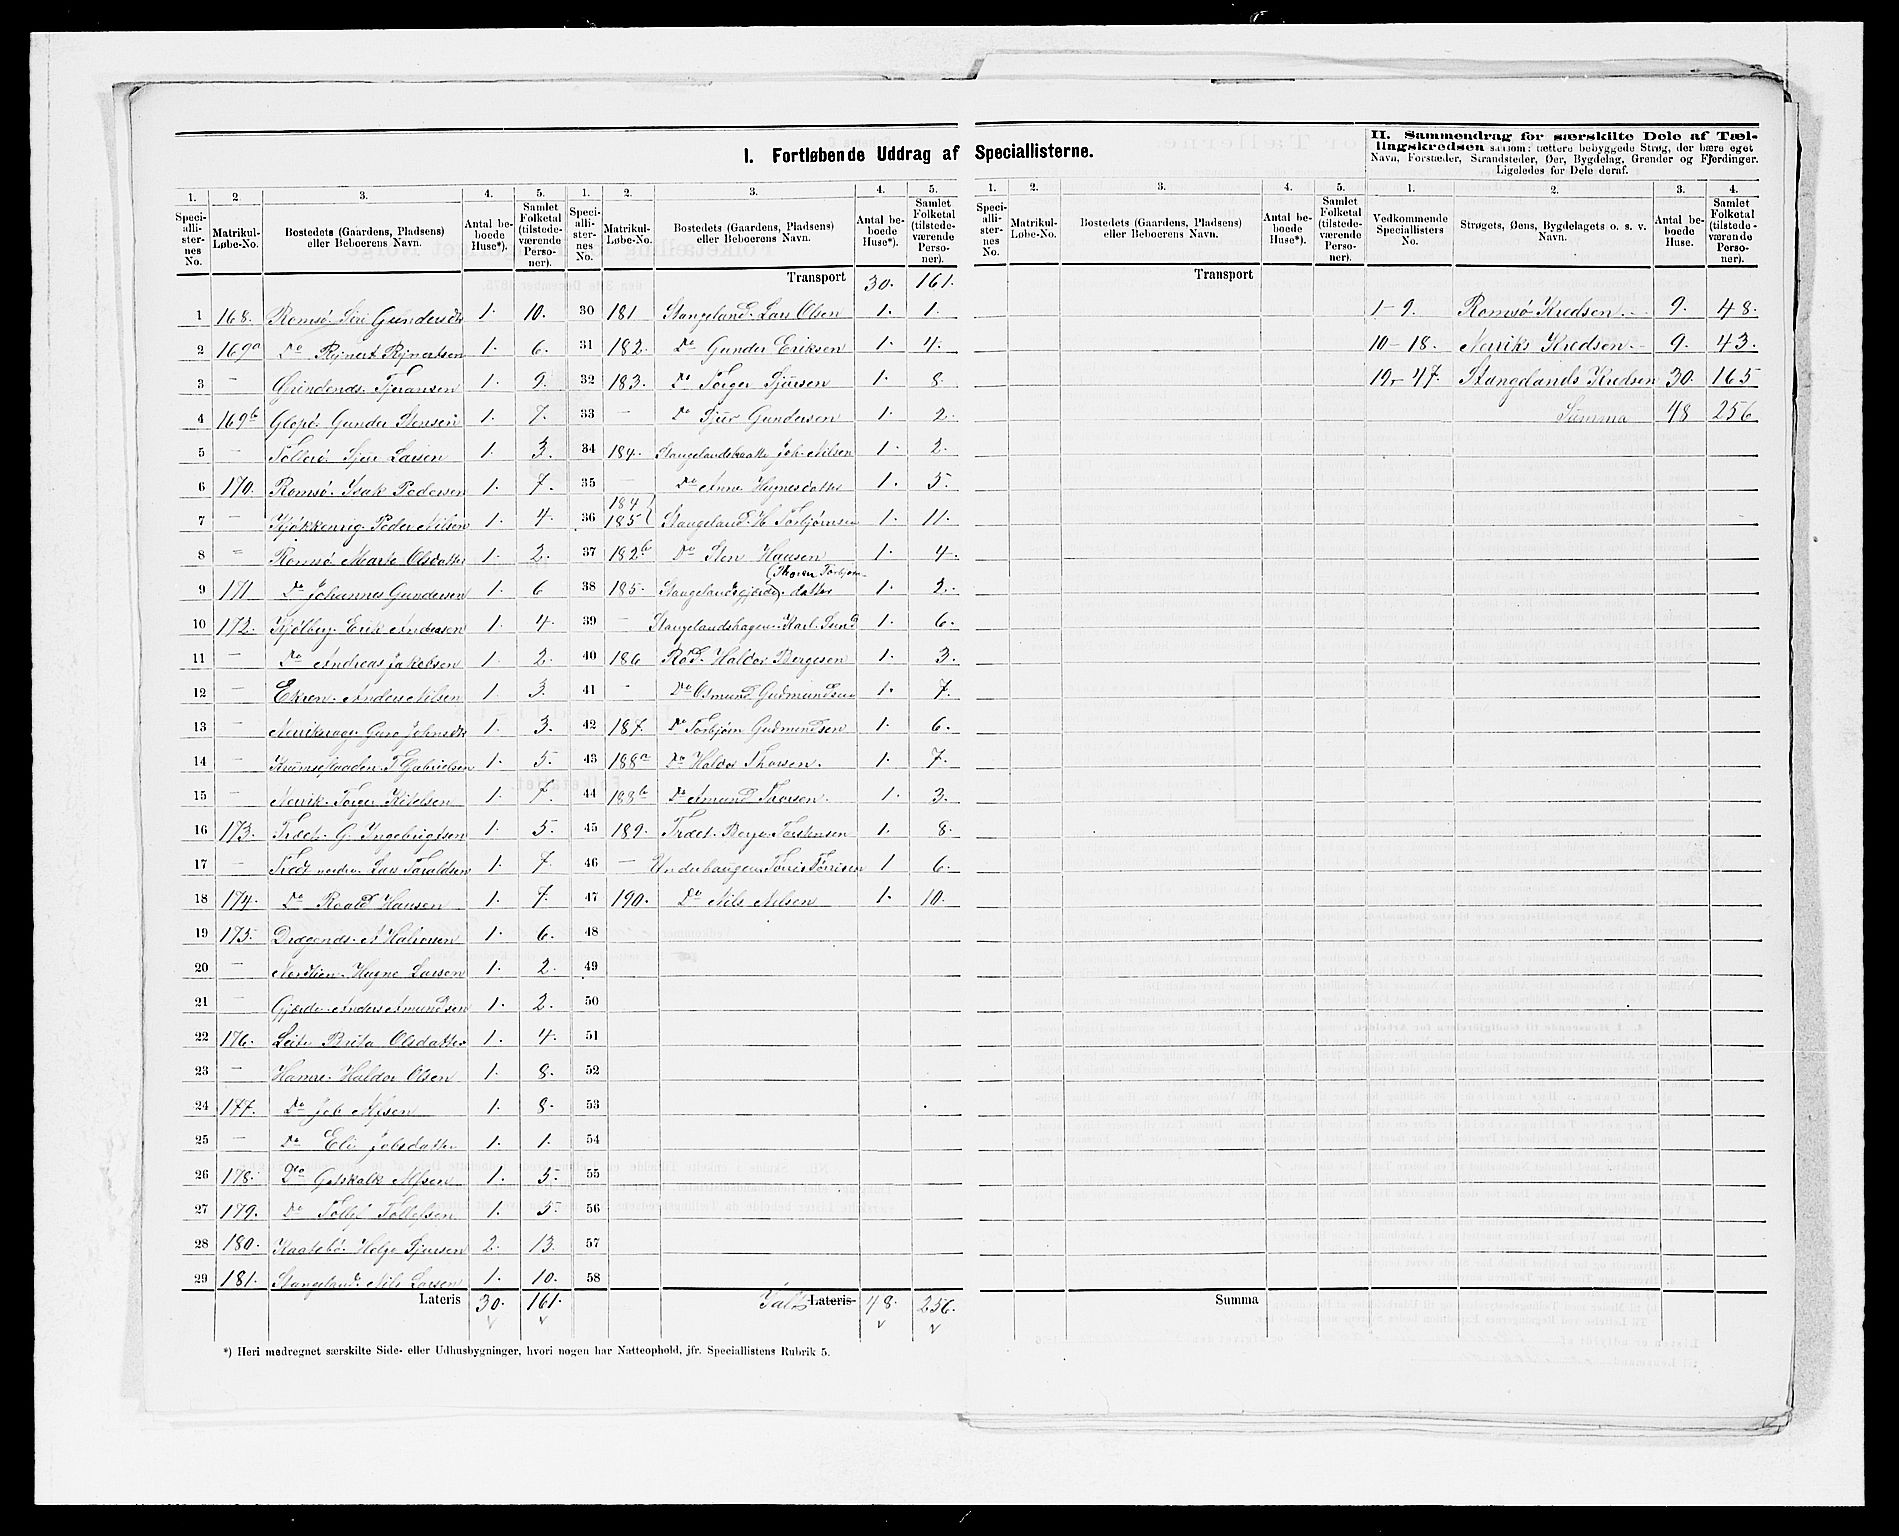 I. Fortløbende Uddrag af Speciallisterne.
II. Sammendrag for særskilte Dele af Tæl-
lingskredsen saasom: tættere bebyggede Strøg, der bære eget
Navn, Forstæder, Strandsteder, Øer, Bygdelag, Grender og Fjerdinger.
Ligeledes for Dele deraf.
1. 2. 3. 4. 5. 1. 2. 3. 4. 5. 1. 2. 3. 4. 5. 1. 2. 3. 4.
Speciallisternes No. Matrikul-Løbe-No. Bostedets (Gaardens, Pladsens) eller Beboerens Navn. Antal beboede Huse*). Samlet Folketal (tilstedeværende Personer).
Speciallisternes No. Matrikul-Løbe-No. Bostedets (Gaardens, Pladsens) eller Beboerens Navn. Antal beboede Huse*). Samlet Folketal (tilstedeværende Personer).
Speciallisternes No. Matrikul-Løbe-No. Bostedets (Gaardens, Pladsens) eller Beboerens Navn. Antal beboede Huse*). Samlet Folketal (tilstedeværende Personer).
Vedkommende Speciallisters No. Strøgets, Øens, Bygdelagets o. s. v. Navn. Antal beboede Huse. Samlet Folketal (tilstedeværende Personer).
1 168. Romsø. Siri Gundersdtr 1. 10.
2 169a Do Rejnert Rejnertsen 1. 6.
3 — Tjeransen 1. 9.
4 169b Gunder Stensen 1. 7.
5 — Tjer Larsen 1. 3.
6 170. Romsø. Isak Pedersen 1. 7.
7 — Kjøkkenvig. Peder Nilsen 1. 4.
8 — Romsø Marte Olsdatter 1. 2.
9 171 Do Johannes Gundersen 1. 6
10 172. Kjølberg. Erik Andreasen 1. 4.
11 — Do Andreas Jakobsen 1. 2.
12 — Ekren. Anders Nilsen 1. 3.
13 — Guro Johnsdtr 1. 3.
14 — T Gabrielsen 1. 5.
15 — Nervik. Torger Ketelsen 1. 7.
16 173. Træet. G. Ingebrigtsen 1. 5.
17 — Træet nordre. Lars Taraldsen 1. 7.
18 174. Do Roald Hansen 1. 7.
19 175. A Halvorsen 1. 6.
20 — Nordlien. Hagne Larsen 1. 2.
21 — Gjærde. Anders Amundsen 1. 2.
22 176. Leite Brita Olsdatter 1. 4.
23 — Hamre. Haldor Olsen 1. 8.
24 177. Do Job Alfsen 1. 8.
25 — Do Eli Jobsdatter 1. 1.
26 178. Do Gotskalk Alfsen 1. 5.
27 179. Do Tollef Tollefsen 1. 5.
28 180. Kaatebø. Helge Tjersen 2. 13.
29 181. Stangeland. Nils Larsen 1. 10.
Lateris 30. 161.
Transport 30. 161.
30 181 Stangeland. Lars Olsen 1. 1.
31 182. Do Gunder Eriksen 1. 4.
32 183. Do Torger Tjørsen 1. 8.
33 — Do Tjer Gundersen 1. 2.
34 184. Stangelandsbakke Joh. Nilsen 1. 2.
35 — Do Anna Hagnesdatter 1. 5.
36 184 185 Stangeland. H. Torbjørnsen 1. 11.
37 182b Do Sten Hansen 1. 4.
38 185. Stangelandsgjærde. (Thoren Torbjørnsdatter 1. 2.
39 — Stangelandshagen. Karl Sund 1. 6.
40 186 Rød. Haldor Bergesen 1. 3.
41 - Do Osmund Gudmundsen 1. 7.
42 187. Do Torbjørn Gudmundsen 1. 6.
43 188a Do Haldor Thorsen. 1. 7.
44 188b Do Amund Thorsen. 1. 3.
45 189. Træet. Berge Torstensen 1. 8.
46 — Underhaugen Tørris Tørrisen 1 6.
47 190. Do Nils Nilsen 1. 10.
48
49
50
51
52
53
54
55
56
57
58
Ialt Lateris 48. 256.
Transport
Summa
1-9. Romsø Kredsen. 9. 48.
10-18. Nerviks Kredsen. 9. 43.
19-47. Stangelands Kredsen 30. 165
Summa 48 256
*) Heri medregnet særskilte Side- eller Udhusbygninger, hvori nogen har Natteophold, jfr. Speciallistens Rubrik 5.